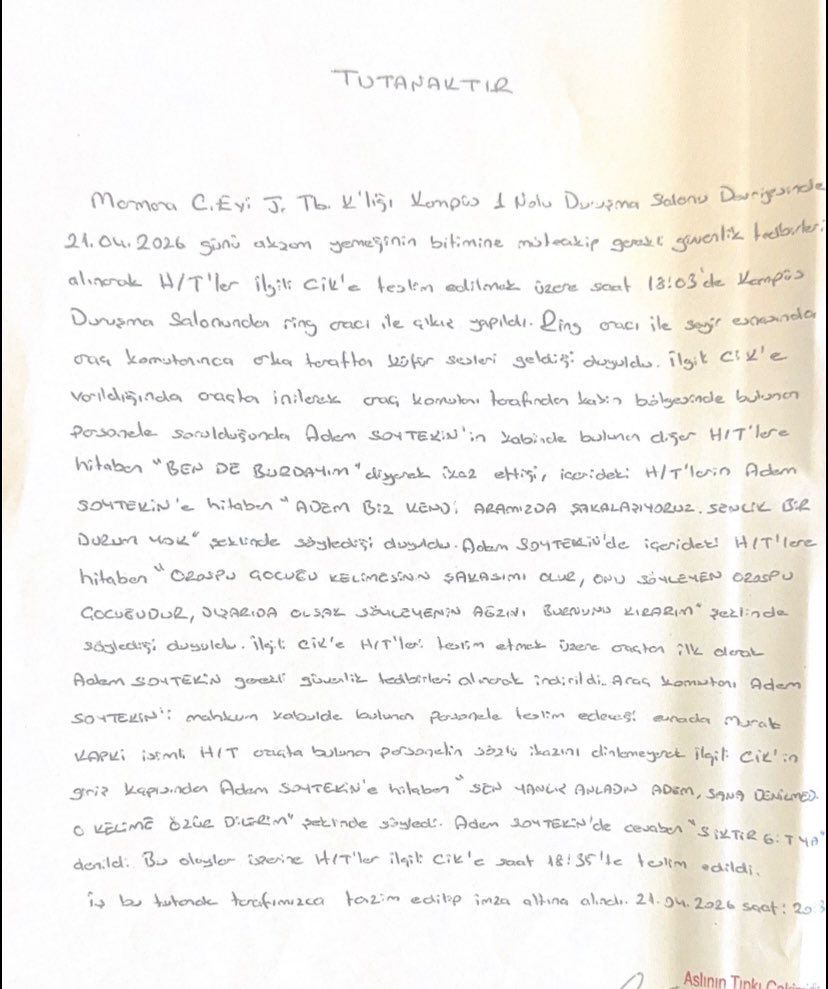 TUTANAKTIR
Marmara C.Evi J. Tb. K'lığı Kampüs 1 Nolu Duruşma Salonu Devriyesinde
21.04.2026 günü akşam yemeğinin bitimine müteakip gerekli güvenlik tedbirleri
alınarak H/T'ler ilgili CİK'e teslim edilmek üzere saat 18:03'de Kampüs
Duruşma Salonundan ring aracı ile çıkış yapıldı. Ring aracı ile seyir esnasında
araç komutanınca arka taraftan küfür sesleri geldiği duyuldu. İlgili CİK'e
varıldığında araçtan inilerek araç komutanı tarafından kabin bölgesinde bulunan
personele sorulduğunda Adem SOYTEKİN'in kabinde bulunan diğer H/T'lere
hitaben "BEN DE BURDAYIM" diyerek ikaz ettiği, içerideki H/T'lerin Adem
SOYTEKİN'e hitaben "ADEM BİZ KENDİ ARAMIZDA ŞAKALAŞIYORUZ. SENLİK BİR
DURUM YOK" şeklinde söylediği duyuldu. Adem SOYTEKİN'de içerideki H/T'lere
hitaben "OROSPU ÇOCUĞU KELİMESİNİN ŞAKASIMI OLUR, ONU SÖYLEYEN OROSPU
ÇOCUĞUDUR, DIŞARIDA OLSAK SÖYLEYENİN AĞZINI BURNUNU KIRARIM" şeklinde
söylediği duyuldu. İlgili CİK'e H/T'leri teslim etmek üzere araçtan ilk olarak
Adem SOYTEKİN gerekli güvenlik tedbirleri alınarak indirildi. Araç komutanı Adem
SOYTEKİN'i mahkum kabulde bulunan personele teslim edeceği esnada Murat
KAPKİ isimli H/T araçta bulunan personelin sözlü ikazını dinlemeyerek ilgili CİK'in
giriş kapısından Adem SOYTEKİN'e hitaben "SEN YANLIŞ ANLADIN ADEM, SANA DENİLMEDİ
O KELİME ÖZÜR DİLERİM" şeklinde söyledi. Adem SOYTEKİN'de cevaben "SİKTİR GİT YA"
denildi. Bu olaylar üzerine H/T'ler ilgili CİK'e saat 18:35'te teslim edildi.
İş bu tutanak tarafımızca tazim edilip imza altına alındı. 21.04.2026 saat:
Aslının Tıpkı